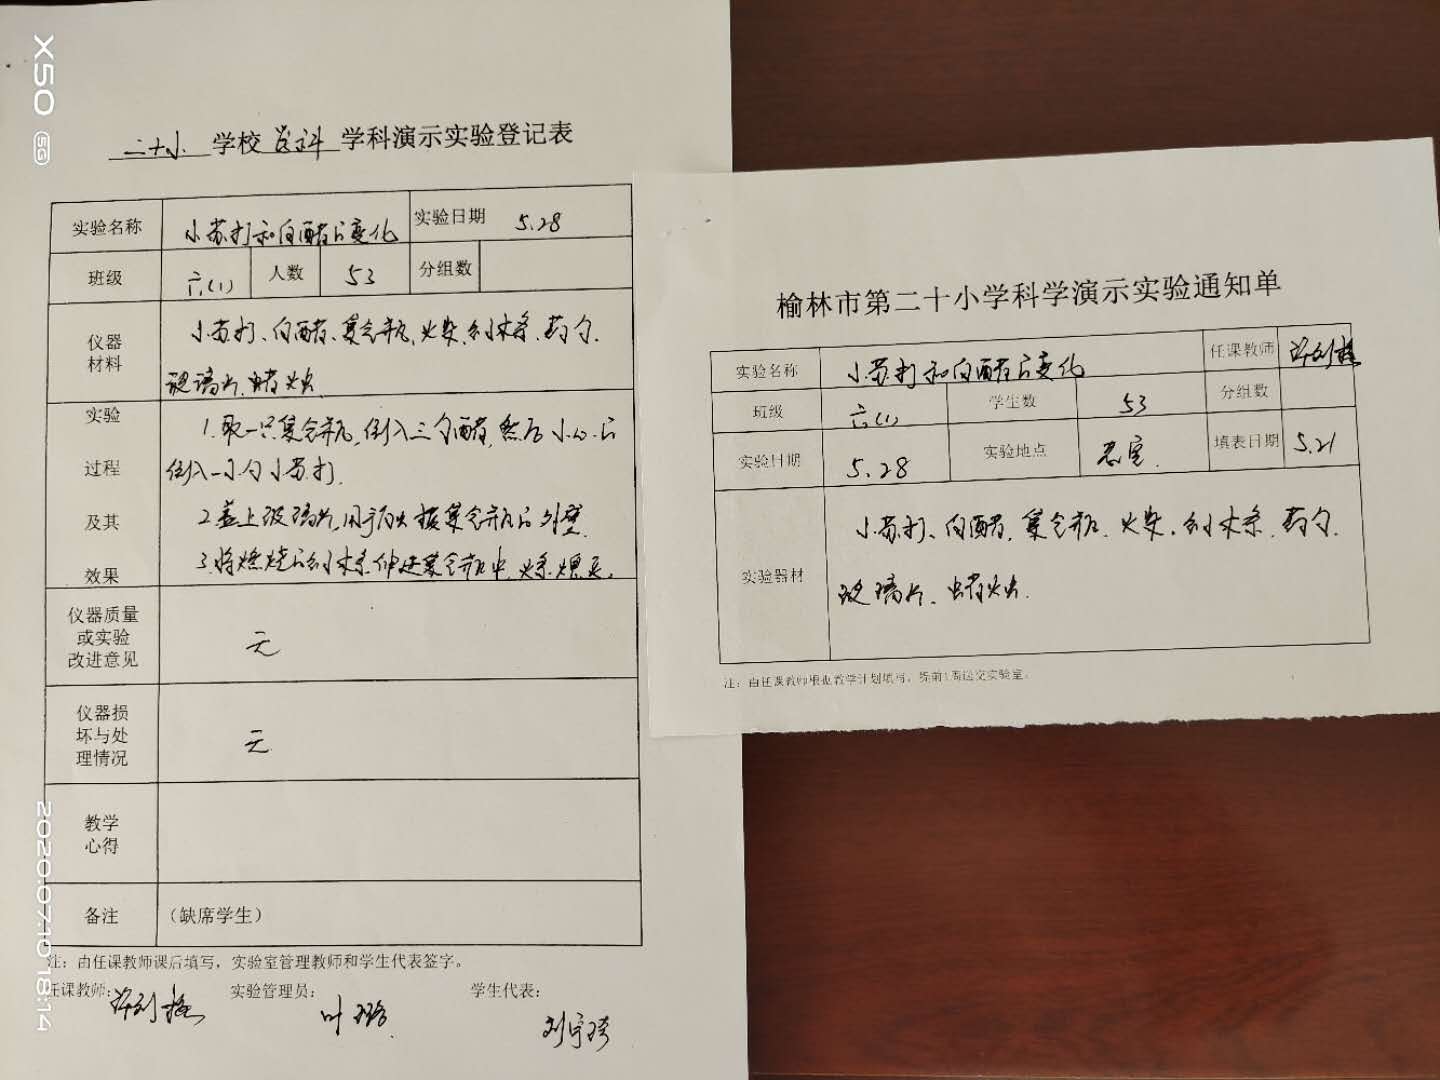 X50 5G
二十小 学校 学科演示实验登记表
实验名称 小苏打和白醋的变化 实验日期 5.28
班级 六(1) 人数 53 分组数
仪器材料 小苏打、白醋、集气瓶、火柴、细木条、药勺、
玻璃片、蜡烛
实验过程及其效果 1.取一只集气瓶,倒入三勺醋,然后小心的
倒入一小勺小苏打.
2.盖上玻璃片,用手触摸集气瓶的外壁.
3.将燃烧的细木条伸进集气瓶中,火条熄灭.
仪器质量或实验改进意见 无
仪器损坏与处理情况 无
教学心得
备注 (缺席学生)
注:由任课教师课后填写,实验室管理教师和学生代表签字。
任课教师: 实验管理员:叶璐 学生代表:刘宇琦
2020.07.10 18:14
榆林市第二十小学科学演示实验通知单
实验名称 小苏打和白醋的变化 任课教师
班级 六(1) 学生数 53 分组数
实验日期 5.28 实验地点 填表日期 5.21
实验器材 小苏打、白醋、集气瓶、火柴、细木条、药勺、
玻璃片、蜡烛.
注:由任课教师根据教学计划填写,提前1周送交实验室。